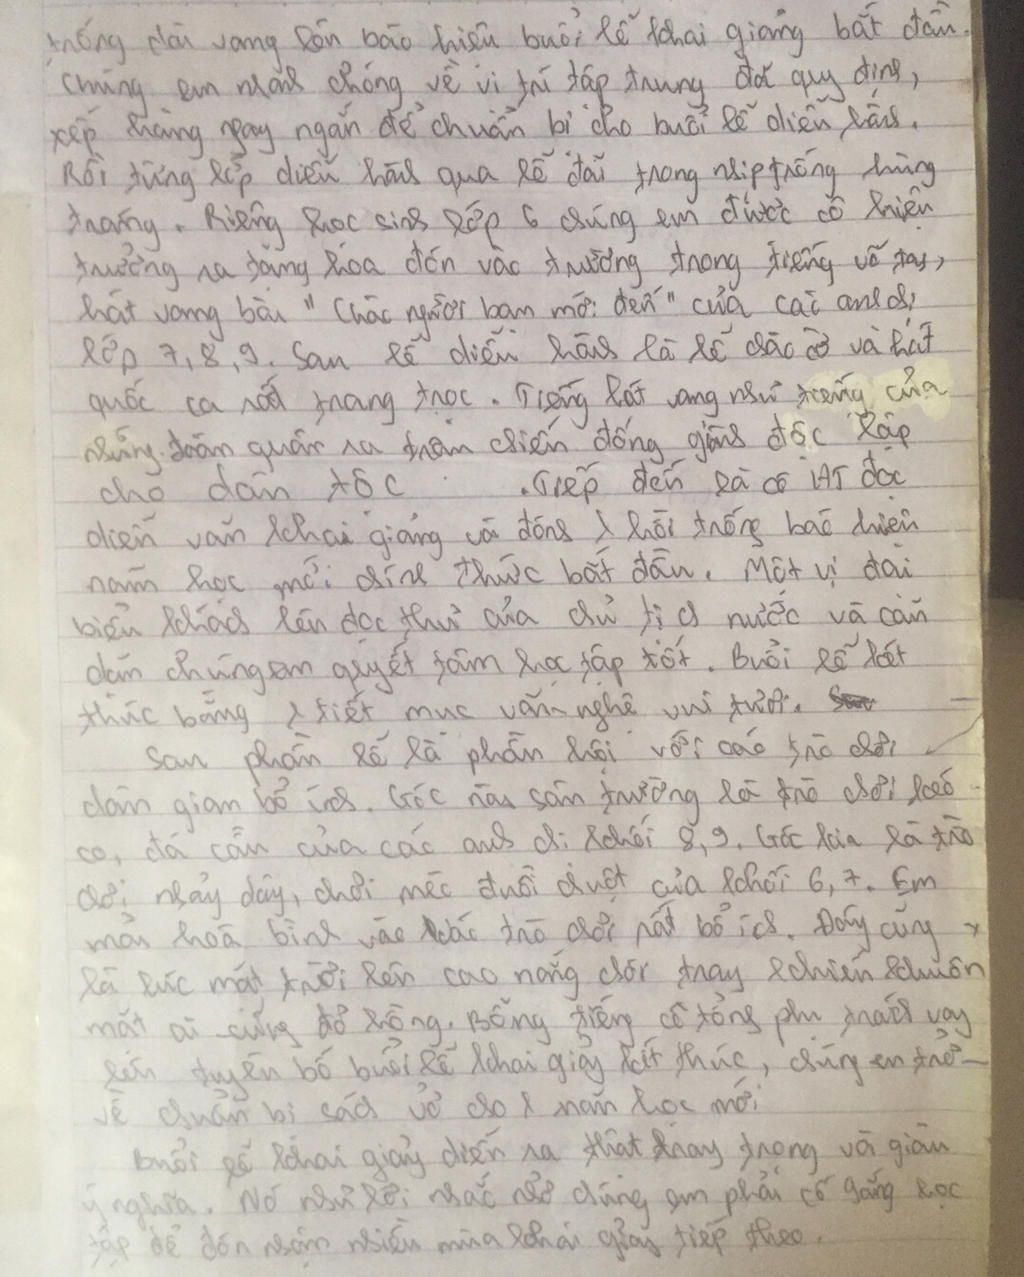 trống dài vang lên báo hiệu buổi lễ khai giảng bắt đầu.
Chúng em nhanh chóng về vị trí tập trung đã quy định,
xếp hàng ngay ngắn để chuẩn bị cho buổi lễ diễu hành.
Rồi từng lớp diễu hành qua lễ đài trong nhịp trống hùng
tráng. Riêng học sinh lớp 6 chúng em được cô hiệu
trưởng ra tặng hoa đón vào trường trong tiếng vỗ tay,
hát vang bài "Chào người bạn mới đến" của các anh chị
lớp 7, 8, 9. Sau lễ diễu hành là lễ chào cờ và hát
quốc ca rất trang trọc. Tiếng hát vang như tiếng của
những đoàn quân ra trận chiến đống giành độc lập
cho dân tộc .Tiếp đến là cô HT đọc
diễn văn khai giảng và đánh 1 hồi trống báo hiệu
năm học mới chính thức bắt đầu. Một vị đại
biểu khách lên đọc thư của chủ tịch nước và căn
dặn chúng em quyết tâm học tập tốt. Buổi lễ kết
thúc bằng 1 tiết mục văn nghệ vui tươi.
Sau phần lễ là phần hội với các trò chơi
dân gian bổ ích. Góc này sân trường là trò chơi kéo
co, đá cầu của các anh chị khối 8, 9. Góc kia là trò
chơi nhảy dây, chơi mèo đuổi chuột của khối 6, 7. Em
mải hoà bình vào các trò chơi rất bổ ích. Đấy cũng
là lúc mặt trời lên cao nắng chói tray khiến khuôn
mặt ai cũng đỏ hồng. Bỗng tiếng cô tổng phụ trách vag
lên tuyên bố buổi lễ khai giảg kết thúc, chúng em trở
về chuẩn bị sách vở cho 1 năm học mới
Buổi lễ khai giảg diễn ra thật trag trọng và giàu
ý nghĩa. Nó như lời nhắc nhở chúng em phải cố gắng học
tập để đón nhận nhiều mùa khai giảg tiếp theo.